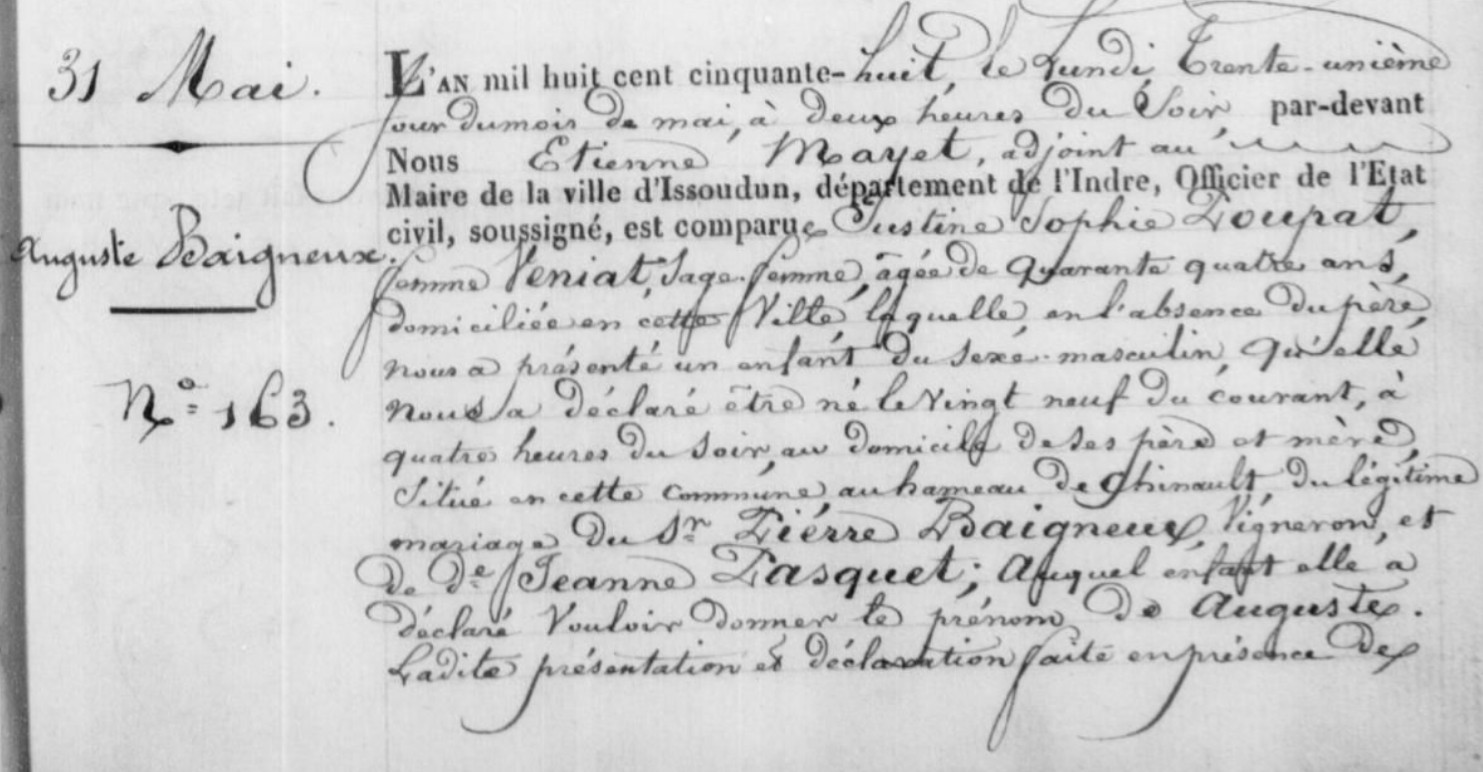 31 Mai.
Auguste Baigneux.
N.º 163.
L'AN mil huit cent cinquante-huit, le Lundi, Trente-unième
jour du mois de mai, à deux heures du Soir, par-devant
Nous Etienne Mayet, adjoint au
Maire de la ville d'Issoudun, département de l'Indre, Officier de l'Etat
civil, soussigné, est comparue Justine Sophie Poupat,
femme Veniat, Sage-femme, âgée de Quarante quatre ans,
domiciliée en cette Ville, laquelle, en l'absence du père,
nous a présenté un enfant du sexe masculin, Qu'elle
nous a déclaré être né le Vingt neuf du courant, à
quatre heures du soir, au domicile de ses père et mère,
Situé en cette commune au hameau de Chinault, du légitime
mariage du Sr. Pierre Baigneux, Vigneron, et
de de. Jeanne Pasquet; Auquel enfant elle a
déclaré Vouloir donner le prénom de Auguste.
Ladite présentation et déclaration faite en présence des